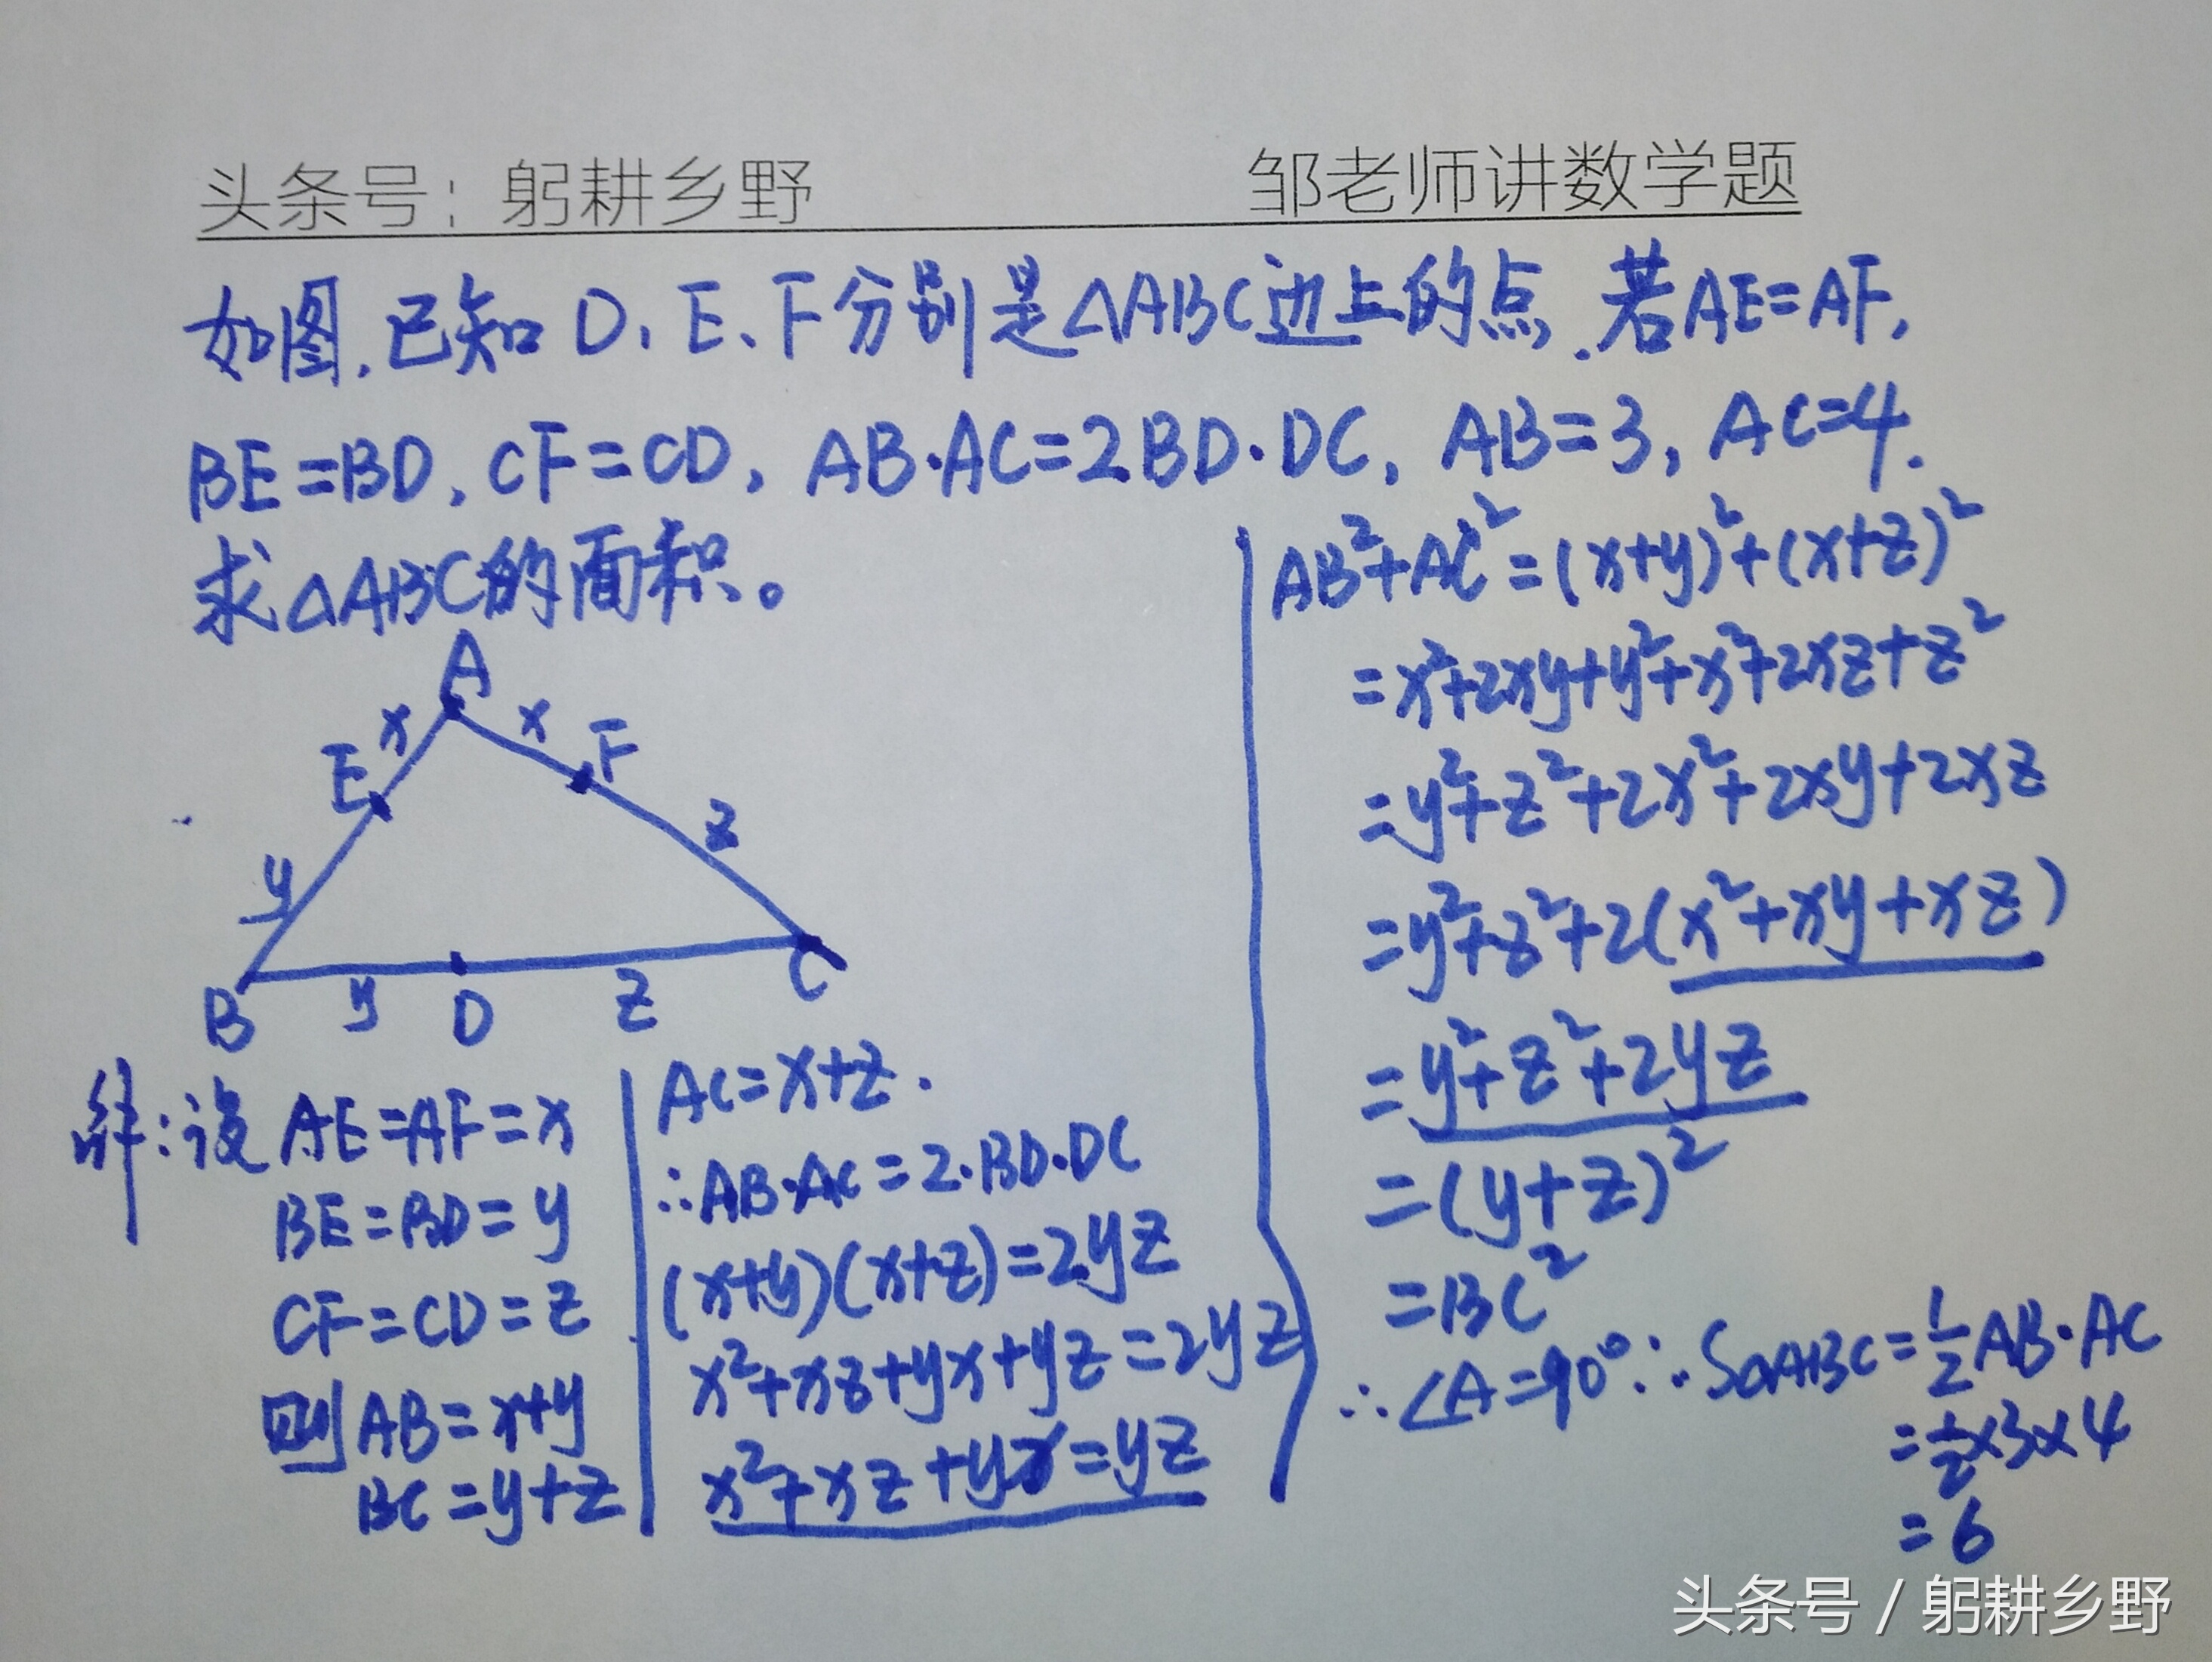 头条号：躬耕乡野
邹老师讲数学题
如图,已知 D、E、F分别是△ABC边上的点.若AE=AF,
BE=BD, CF=CD, AB·AC=2BD·DC, AB=3, AC=4.
求△ABC的面积。
A
x
x
E
F
y
z
B
y
D
z
C
解:设 AE=AF=x
BE=BD=y
CF=CD=z
则 AB=x+y
BC=y+z
AC=x+z.
∵AB·AC=2·BD·DC
(x+y)(x+z)=2yz
x²+xz+yx+yz=2yz
x²+xz+yx=yz
AB²+AC²=(x+y)²+(x+z)²
=x²+2xy+y²+x²+2xz+z²
=y²+z²+2x²+2xy+2xz
=y²+z²+2(x²+xy+xz)
=y²+z²+2yz
=(y+z)²
=BC²
∴∠A=90°∴S△ABC=½AB·AC
=½×3×4
=6
头条号 / 躬耕乡野